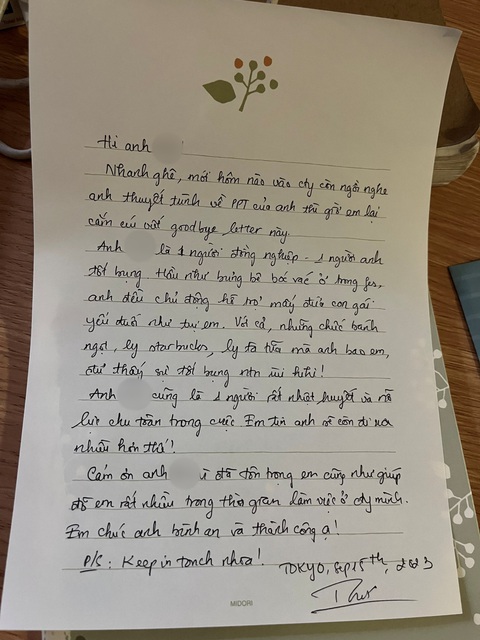 Hi anh
Nhanh ghê, mới hôm nào vào cty còn ngồi nghe
anh thuyết trình về PPT của anh thì giờ em lại
cắm cúi viết goodbye letter này.
Anh là 1 người đồng nghiệp - 1 người anh
tốt bụng. Hầu như bưng bê bốc vác ở trong
anh đều chủ động hỗ trợ mấy đứa con gái
yếu đuối như tụi em. Với cả, những chiếc bánh
ngọt, ly starbucks, ly trà sữa mà anh bao em,
đủ thấy sự tốt bụng ntn ùi hihi!
Anh cũng là 1 người rất nhiệt huyết và nỗ
lực chu toàn trong công việc. Em tin anh sẽ còn đi xa
nhiều hơn thế!
Cảm ơn anh vì đã tôn trọng em cũng như giúp
đỡ em rất nhiều trong thời gian làm việc ở cty mình.
Em chúc anh bình an và thành công ạ!
P/S: Keep in touch nhoa!
TOKYO, Sep 15th, 2023
MIDORI